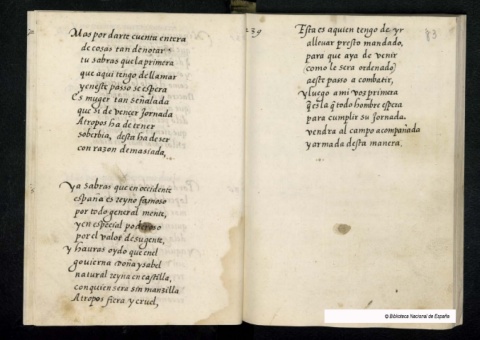 Mas por darte cuenta entera
de cosas tan de notar
tu sabras que la primera
que aqui tengo de llamar
y en este passo se espera
Es muger tan señalada
que si de vençer Jornada
Atropos ha de tener
soberbia, desta ha de ser
con razon demasiada.
Ya sabras que en occidente
españa es reyno famoso
por todo general mente,
y en especial poderoso
por el valor de su gente,
y hauras oydo que en el
gouierna doña ysabel
natural reyna en castilla,
con quien sera sin manzilla
Atropos fiera y cruel,
239
83
Esta es a quien tengo de yr
a lleuar presto mandado,
para que aya de venir
como le sera ordenado
a este passo a combatir,
y luego a mi vos primera
qes la q todo hombre espera
para cumplir su Jornada.
vendra al campo acompañada
y armada desta manera.
© Biblioteca Nacional de España